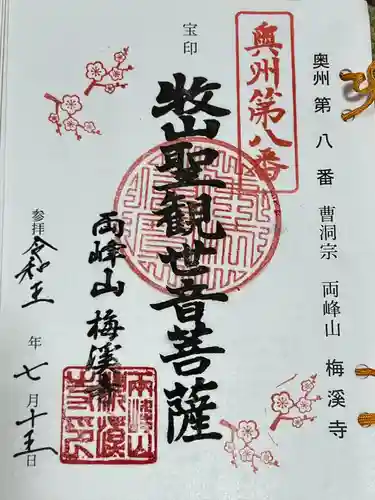 奥州 第 八 番 曹洞宗 両峰山 梅溪寺
奥州第八番
宝印
牧山聖観世音菩薩
両峰山 梅溪寺
参拝 令和五年 七月十五日
両峰山
梅溪
寺印